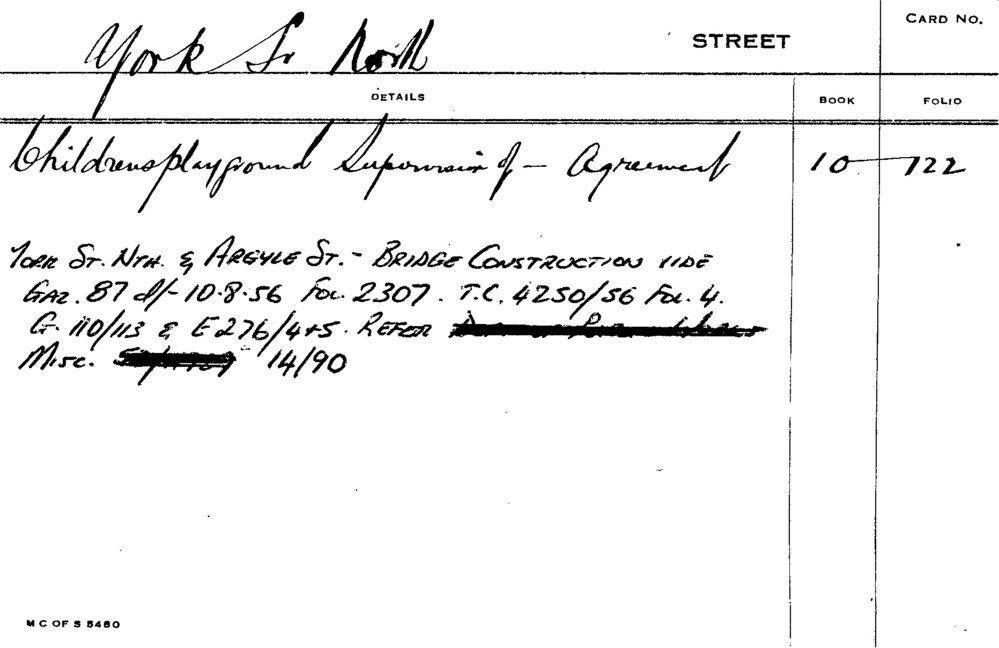 CARD NO.
York St North STREET
DETAILS BOOK FOLIO
Childrens playground Supervision of - Agreement 10 - 122
YORK ST. NTH. & ARGYLE ST. - BRIDGE CONSTRUCTION VIDE
GAZ. 87 d/- 10.8.56 FOL. 2307. T.C. 4250/56 FOL. 4.
G. 110/113 & E276/4+5. REFER
MISC. 14/90
M C OF S 5460